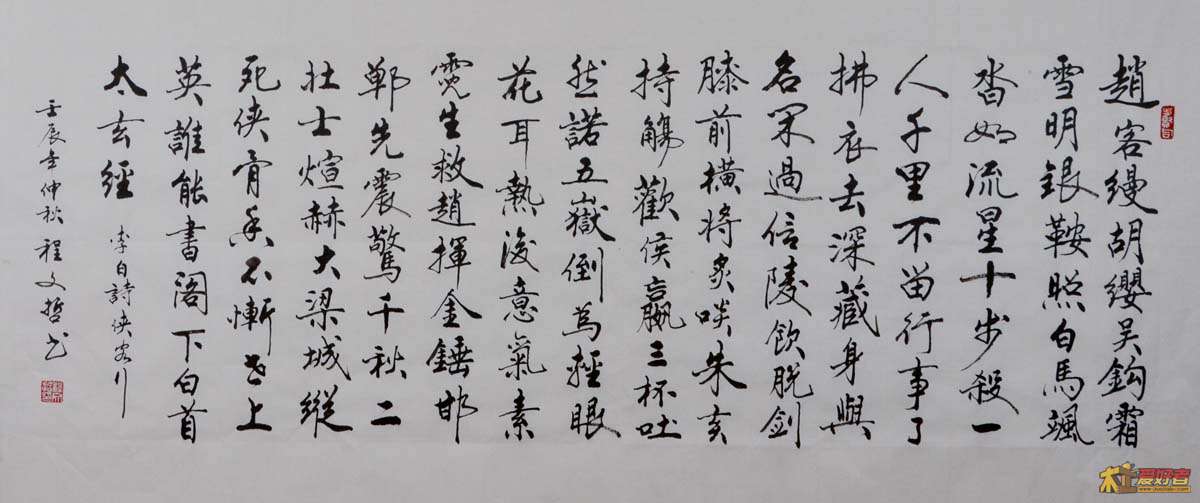 趙客縵胡纓吳鈎霜
雪明銀鞍照白馬颯
沓如流星十步殺一
人千里不留行事了
拂衣去深藏身與
名閑過信陵飲脫劍
膝前橫將炙啖朱亥
持觴勸侯嬴三杯吐
然諾五嶽倒為輕眼
花耳熱後意氣素
霓生救趙揮金錘邯
鄲先震驚千秋二
壯士煊赫大梁城縱
死俠骨香不慚世上
英誰能書閣下白首
太玄經
李白詩俠客行
壬辰年仲秋 程文哲书
爱好者